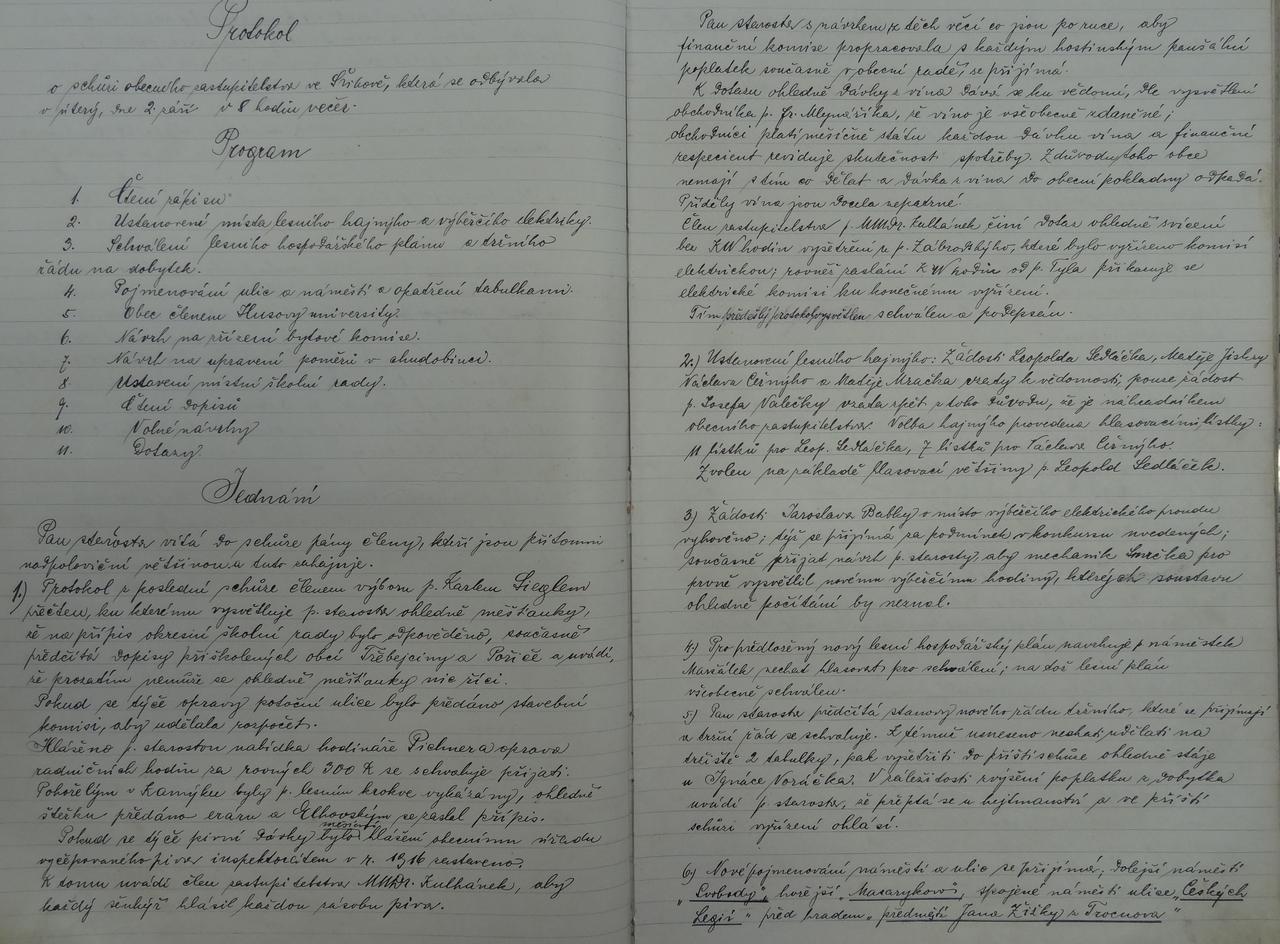 Protokol
o schůzi obecného zastupitelstva ve Štibově, která se odbývala
v úterý, dne 2 září v 8 hodin večer.
Program
1. Čtení zápisu
2. Ustanovení místa lesního hajného a výběrčího elektriky.
3. Schválení lesního hospodářského plánu a tržního
řádu na dobytek.
4. Pojmenování ulic a náměstí a opatření tabulkami.
5. Obec členem Husovy university.
6. Návrh na zřízení bytové komise.
7. Návrh na upravení poměrů v chudobinci.
8 Ustavení místní školní rady.
9. Čtení dopisů
10. Volné návrhy
11. Dotazy.
Jednání
Pan starosta vítá do schůze pány členy, kteří jsou přítomni
nadpoloviční většinou a tuto zahajuje.
1.) Protokol z poslední schůze členem výboru p. Karlem Sieglem
přečten, ku kterému vysvětluje p. starosta ohledně měšťanky,
že na přípis okresní školní rady bylo odpověděno, současně
předčítá dopisy přiškolených obcí Třebejčiny a Poříčě a uvádí,
že prozatím nemůže se ohledně měšťanky nic říci.
Pokud se týče opravy potoční ulice bylo předáno stavební
komisi, aby udělala rozpočet.
Hlášeno p. starostou nabídka hodináře Pichnera oprava
radničních hodin za rovných 300 K se schvaluje přijati.
Pohořelým v Kamýku byly p. lesním krokve vykázány, ohledně
štěrku předáno eráru a Elhovským se zaslal přípis.
Pokud se týče pivní dávky bylo měsíční hlášení obecnímu úřadu
vyčepovaného piva inspektorátem v r. 1916 zastaveno.
K tomu uvádí člen zastupitelstva MUDr. Kulhánek, aby
každý šenkýř hlásil každou zásobu piva.
Pan starosta s návrhem z těch věcí co jsou po ruce, aby
finanční komise propracovala s každým hostinským paušální
poplatek současně v obecní radě, se přijímá.
K dotazu ohledně dávky z vína dává se ku vědomí, dle vysvětlení
obchodníka p. Fr. Mlynáříka, že víno je všeobecně zdaněné;
obchodníci platí měsíčně státu každou dávku vína a finanční
respicient reviduje skutečnost spotřeby. Z důvodu toho obce
nemají s tím co dělat a dávka z vína do obecní pokladny odpadá.
Příděly vína jsou docela nepatrné.
Člen zastupitelstva p. MUDr. Kulhánek činí dotaz ohledně svícení
bez KW hodin vyšetření u p. Zábrodského, které bylo vyřízeno komisí
elektrickou; rovněž zaslání KW hodin od p. Tyla přikazuje se
elektrické komisi ku konečnému vyřízení.
Tím předešlý protokol vysvětlen schválen a podepsán.
2.) Ustanovení lesního hajného: Žádosti Leopolda Sedláčka, Matěje Jiskry
Václava Černýho a Matěje Mračka vzaty k vědomosti, pouze žádost
p. Josefa Valečky vzata zpět z toho důvodu, že je náhradníkem
obecního zastupitelstva. Volba hajného provedena hlasovacími lístky:
11 lístků pro Leop. Sedláčka, 7 lístků pro Václava Černýho.
Zvolen na základě hlasovací většiny p Leopold Sedláček.
3) Žádosti Jaroslava Babky o místo výběrčího elektrického proudu
vyhověno; týž se přijímá za podmínek v konkursu uvedených;
současně přijat návrh p. starosty, aby mechanik Smrčka pro
prvně vysvětlil novému výběrčímu hodiny, kterých soustavu
ohledně počítání by neznal.
4.) Pro předložený nový lesní hospodářský plán navrhuje p náměstek
Maršálek nechat hlasovat pro schválení; na což lesní plán
všeobecně schválen.
5) Pan starosta předčítá stanovy nového řádu tržního, které se přijímají
a tržní řád se schvaluje. K témuž usneseno nechati udělati na
tržiště 2 tabulky, pak vyšetřiti do příští schůze ohledně stáje
u Ignáce Voráčka. V záležitosti zvýšení poplatku z dobytka
uvádí p. starosta, že přeptá se u hejtmanství a ve příští
schůzi vyřízení ohlásí.
6) Nové pojmenování náměstí a ulic se přijímá; dolejší náměstí
„Svobody", hořejší „Masarykovo", spojené náměstí ulice „Českých
Legií" před hradem „předměstí Jana Žižky z Trocnova"